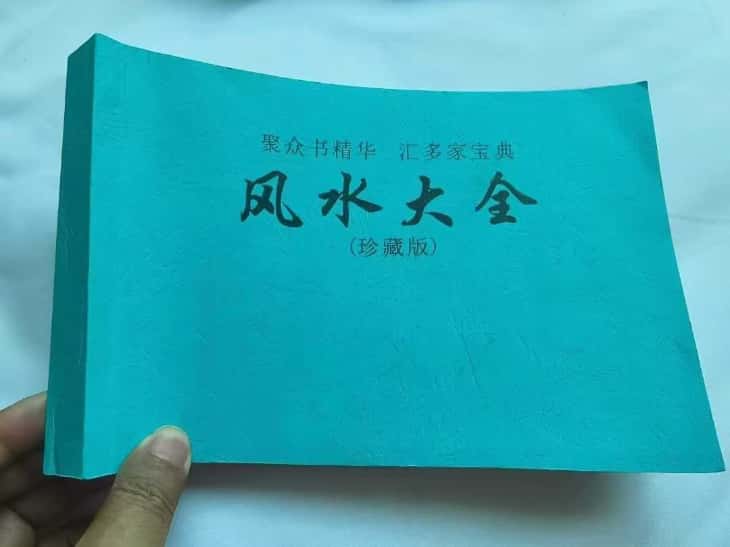 聚众书精华 汇多家宝典
风水大全
(珍藏版)